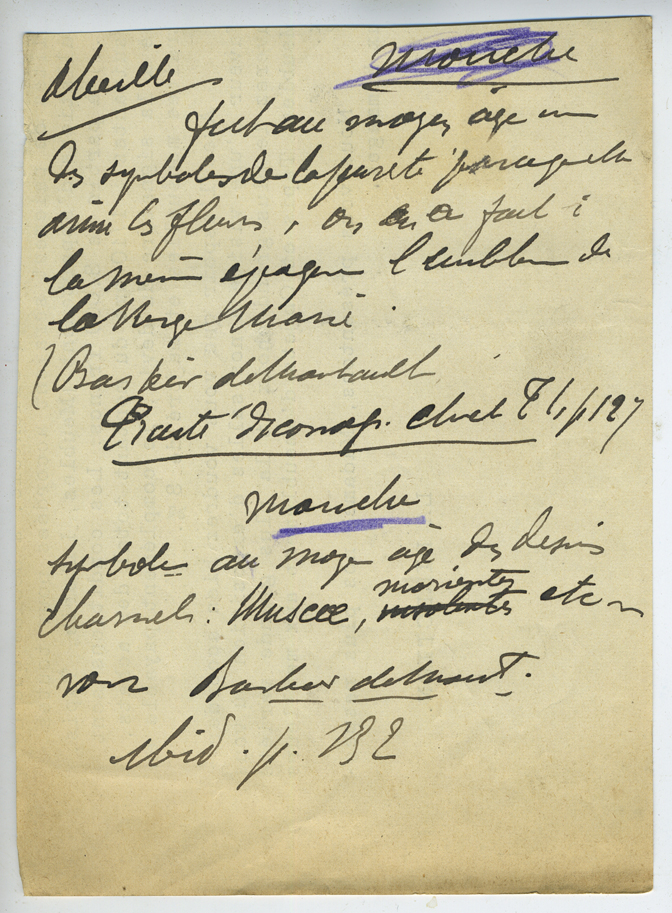 Abeille Mouche
fut au moyen âge un
des symboles de la pureté parce qu'elle
aime les fleurs, on en a fait à
la même époque l'emblème de
la Vierge Marie.
(Barbier de Montault
Traité d'iconogr. chret T 1, p 127
Mouche
symbole au moyen âge des désirs
charnels : Muscae, morientes insolentes etc
voir Barbier de Mont.
ibid. p. 132